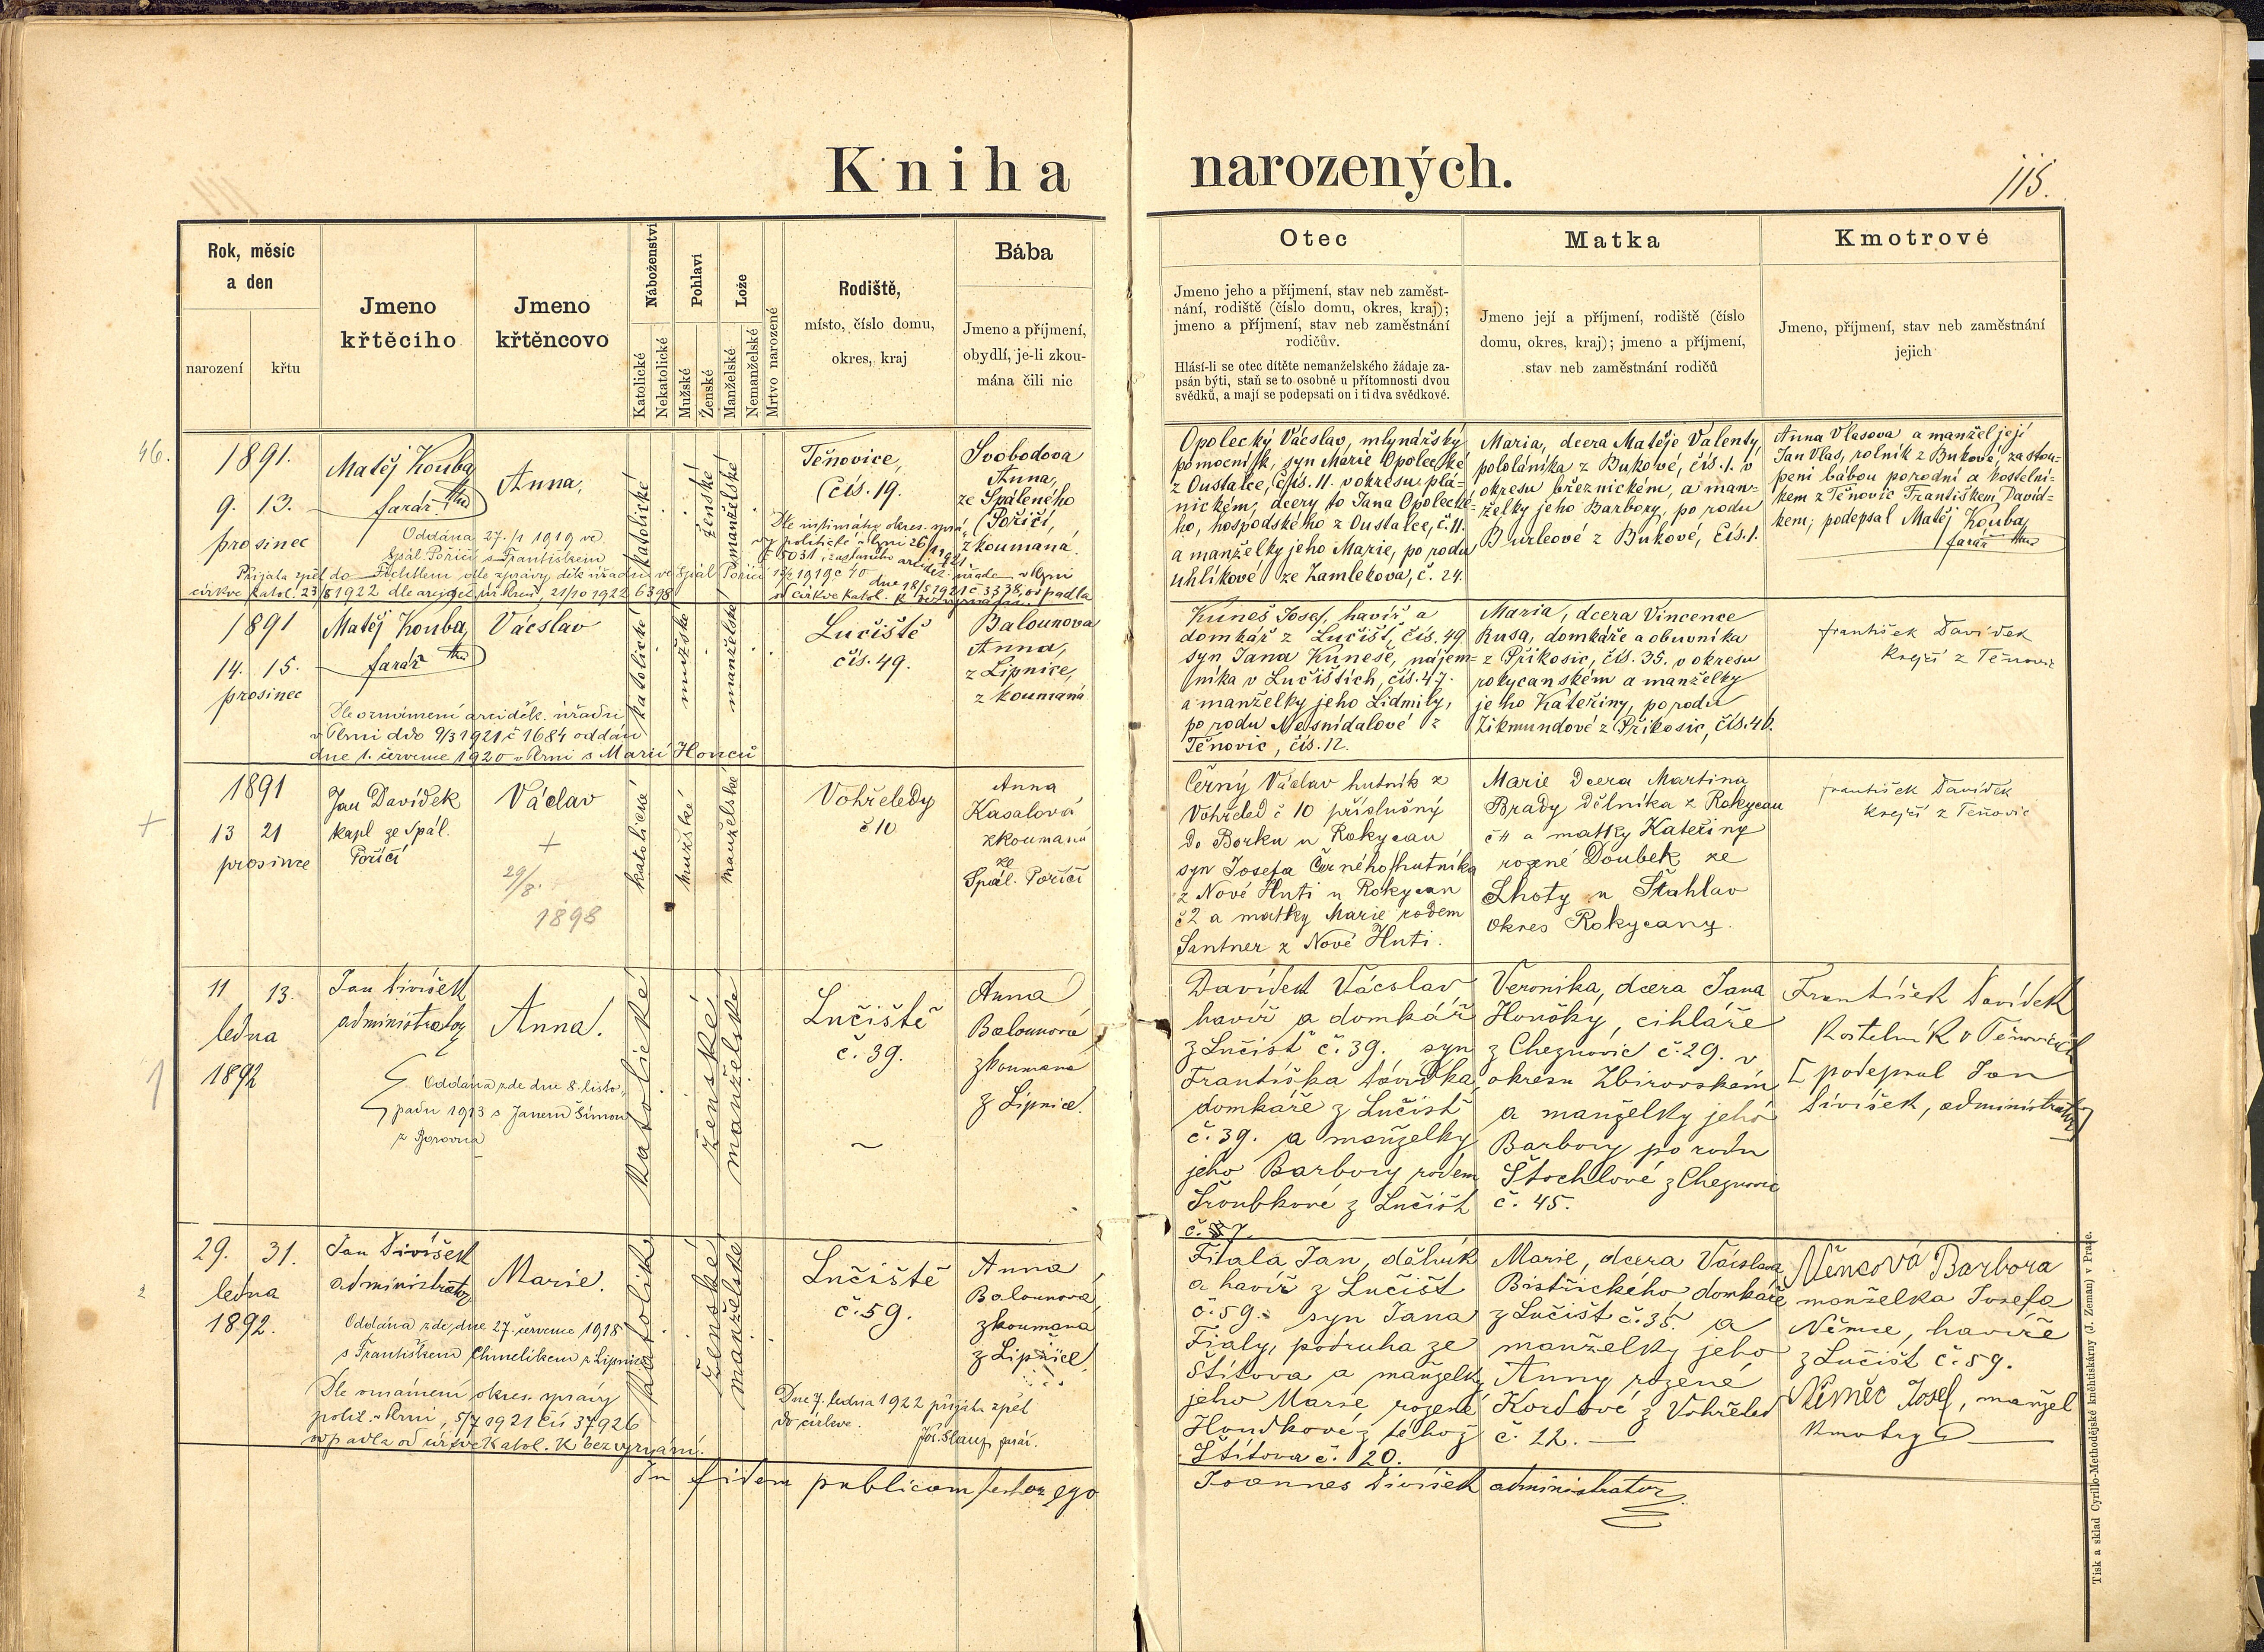 Kniha narozených.
115.
Rok, měsíc
a den
narození
křtu
Jmeno
křtěcího
Jmeno
křtěncovo
Náboženství
Katolické
Nekatolické
Pohlaví
Mužské
Ženské
Lože
Manželské
Nemanželské
Mrtvo narozené
Rodiště,
místo, číslo domu,
okres, kraj
Bába
Jmeno a příjmení,
obydlí, je-li zkou-
mána čili nic
Otec
Jmeno jeho a příjmení, stav neb zaměst-
nání, rodiště (číslo domu, okres, kraj);
jmeno a příjmení, stav neb zaměstnání
rodičův.
Hlásí-li se otec dítěte nemanželského žádaje za-
psán býti, staň se to osobně u přítomnosti dvou
svědků, a mají se podepsati on i ti dva svědkové.
Matka
Jmeno její a příjmení, rodiště (číslo
domu, okres, kraj); jmeno a příjmení,
stav neb zaměstnání rodičů
Kmotrové
Jmeno, příjmení, stav neb zaměstnání
jejich
46.
1891.
9. 13.
prosinec
Matěj Kouba
farář
Anna,
katolické
ženské
manželské
Těnovice,
čís. 19.
Svobodova
Anna,
ze Spáleného
Poříčí,
zkoumaná.
Oddána 27./1 1919 ve
Spál. Poříčí s Františkem
Fichtlem dle zprávy děk. úřadu ve Spál. Poříčí
Přijata zpět do
církve katol. 23/8 1922
21/10 1922 6398
Opolecký Václav, mlynářský
pomocník, syn Marie Opolecké
z Oustalce, čís. 11. v okresu plá-
nickém, dcery to Jana Opolecké-
ho, hospodského z Oustalce, č. 11.
a manželky jeho Marie, po rodu
Uhlíkové ze Zamlekova, č. 24.
Maria, dcera Matěje Valenty,
pololáníka z Bukové, čís. 1. v
okresu březnickém, a man-
želky jeho Barbory, po rodu
z Bukové, čís. 1.
Anna Vlasova a manžel její
Jan Vlas, rolník z Bukové, zastou-
peni bábou porodní a kostelní-
kem z Těnovic Františkem Davíd-
kem; podepsal Matěj Kouba,
farář
1891
14. 15.
prosinec
Matěj Kouba,
farář
Václav
katolické
mužské
manželské
Lučiště
čís. 49.
Balounova
Anna,
z Lipnice,
zkoumaná
Dle oznámení arciděk. úřadu
v Plzni dto 9/3 1921 č 1684 oddán
dne 1. července 1920 v Plzni s Marií Honců
Kuneš Josef, havíř a
domkář z Lučišť, čís. 49
syn Jana Kuneše, nájem-
níka v Lučištích, čís. 47.
a manželky jeho Lidmily,
po rodu Nesnídalové z
Těnovic, čís. 12.
Maria, dcera Vincence
Rusa, domkáře a obuvníka
z Příkosic, čís. 35. v okresu
rokycanském a manželky
jeho Kateřiny, po rodu
Zikmundové z Příkosic, čís. 46.
František Davídek
krejčí z Těnovic
1891
13 21
prosince
Jan Davídek
kapl. ze Spál.
Poříčí
Václav
+
29/8.
1898
katolické
mužské
manželské
Vohřeledy
č 10
Anna
Kasalová
zkoumaná
ze
Spál. Poříčí
Černý Václav hutník z
Vohřeled č 10 příslušný
do Borku u Rokycan
syn Josefa Černého hutníka
z Nové Huti u Rokycan
č 2 a matky Marie rodem
Santner z Nové Huti.
Marie dcera Martina
Brady dělníka z Rokycan
č 11 a matky Kateřiny
rozené Doubek ze
Lhoty u Šťahlav
okres Rokycany.
František Davídek
krejčí z Těnovic
1
11 13.
ledna
1892
Jan Divíšek
administrator
Anna.
katolické
ženské
manželské
Lučiště
č. 39.
Anna
Balounová
zkoumaná
z Lipnice.
Oddána zde dne 8. listo-
padu 1913 s Janem Šimou
z Borovna
Davídek Václav
havíř a domkář
z Lučišť č. 39., syn
Františka Davídka,
domkáře z Lučišť
č. 39. a manželky
jeho Barbory rodem
Šroubkové z Lučišť
č. 7.
Veronika, dcera Jana
Hončky, cihláře
z Cheznovic č. 29. v
okresu Zbirovském
a manželky jeho
Barbory po rodu
Štochlové z Cheznovic
č. 45.
František Davídek
kostelník v Těnovicích
[podepsal Jan
Divíšek, administrator]
2
29. 31.
ledna
1892.
Jan Divíšek
administrator
Marie.
katolické
ženské
manželské
Lučiště
č. 59.
Anna
Balounová,
zkoumaná
z Lipnice.
Oddána zde, dne 27. července 1918
s Františkem Chmelíkem z Lipnice
Dle oznámení okres. správy
polit. v Plzni, 5/7 1921 čís 37926
odpadla od církve katol. k bezvyznání.
Dne 7. ledna 1922 přijata zpět
do církve.
Jos. Slaup, farář.
Fiala Jan, dělník
a havíř z Lučišť
č. 59. syn Jana
Fialy, podruha ze
Štítova a manželky
jeho Marie, rozené
Houdkové z téhož
Štítova č. 20.
Marie, dcera Václava
Bistřického domkáře
z Lučišť č. 35. a
manželky jeho
Anny rozené
Kordové z Vohřeled
č. 22.
Němcová Barbora
manželka Josefa
Němce, havíře
z Lučišť č. 59.
Němec Josef, manžel
kmotry
In fidem publicam testor ego
Joannes Divíšek administrator
Tisk a sklad Cyrillo-Methodějské kněhtiskárny (J. Zeman) v Praze.